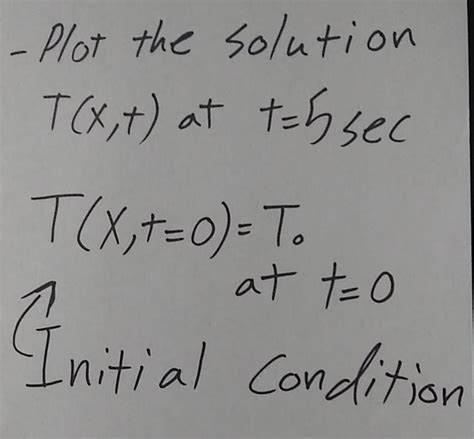 - Plot the solution
T(x,t) at t=5 sec
T(x,t=0)=T₀
at t=0
Initial Condition